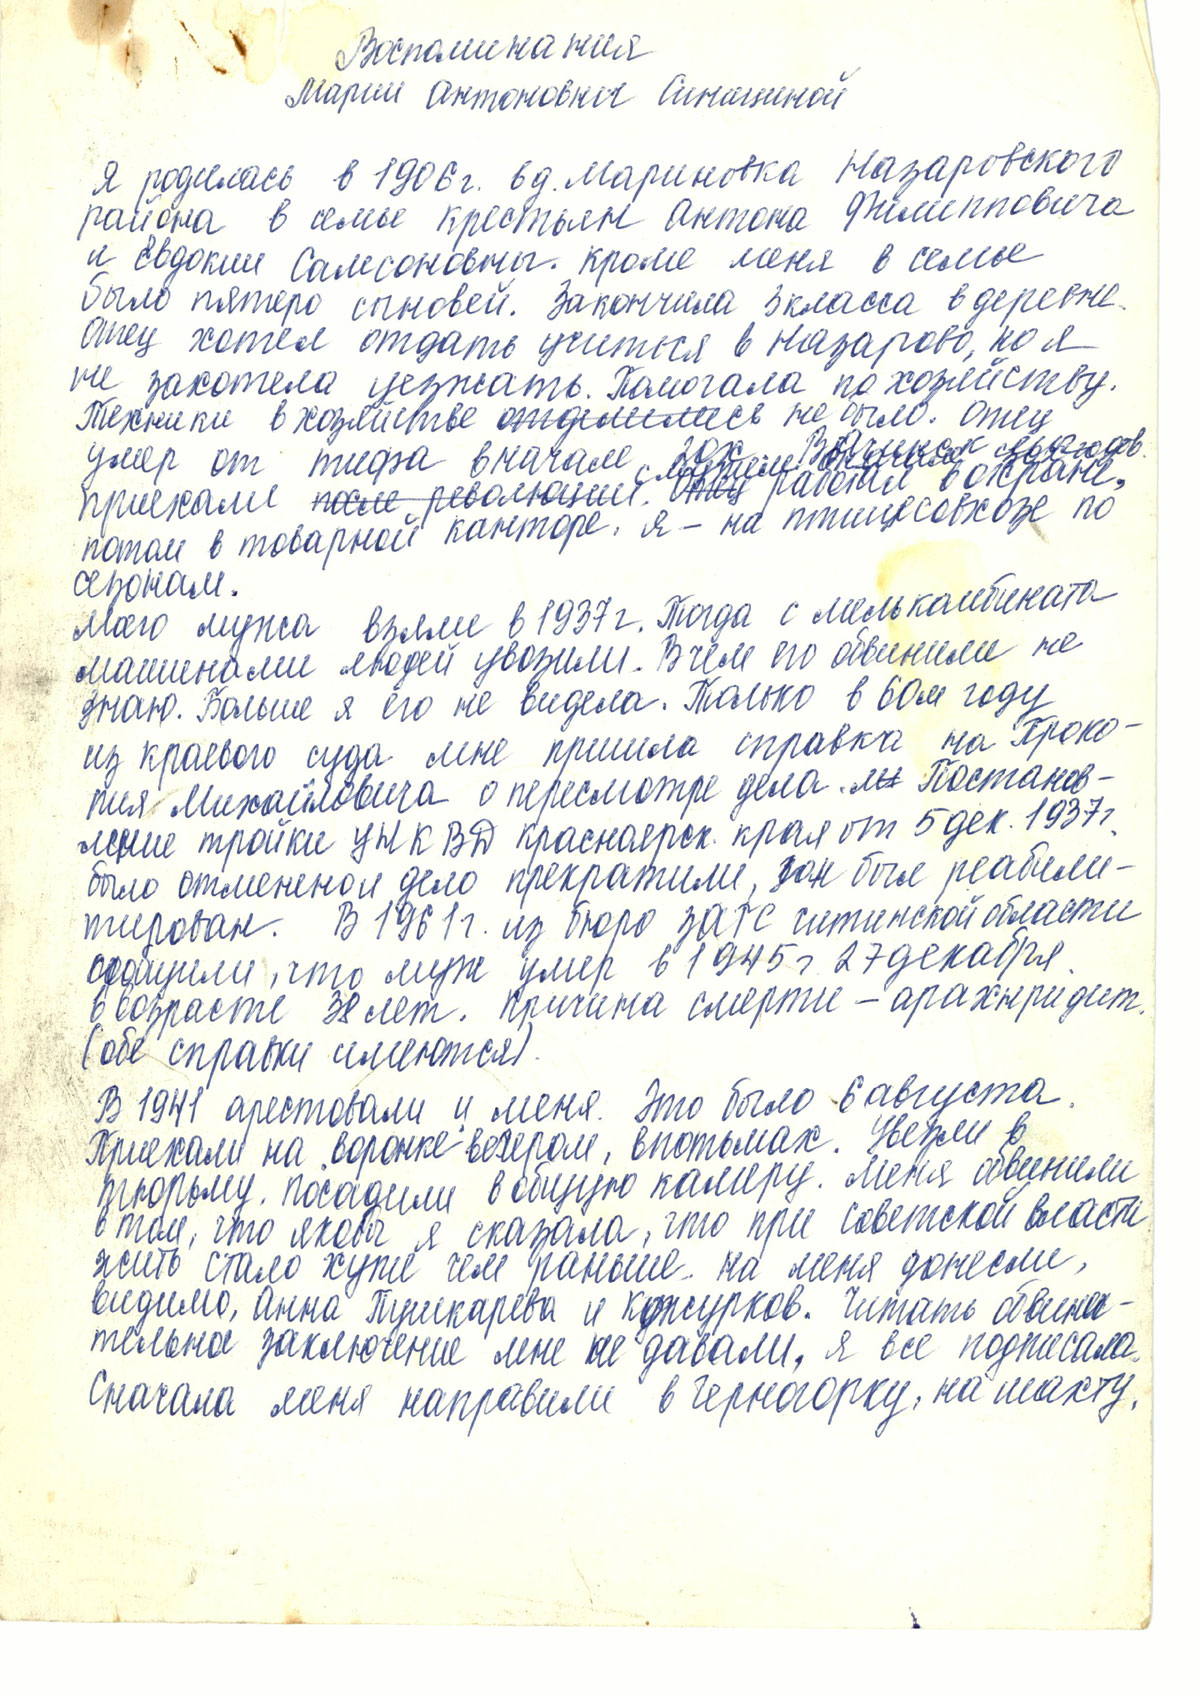 Воспоминания
Марии Антоновны Синициной
Я родилась в 1906г. в д. Мариновка Назаровского
района в семье крестьян Антона Филипповича
и Евдокии Самсоновны. Кроме меня в семье
было пятеро сыновей. Закончила 3 класса в деревне.
Отец хотел отдать учиться в Назарово, но я
не захотела уезжать. Помогала по хозяйству.
Техники в хозяйстве не было. Отец
умер от тифа вначале 20х. В Ачинск
приехали после революции. с мужем. Отец работал в охране,
потом в товарной канторе. Я – на птицесовхозе по
сезонам.
Моего мужа взяли в 1937г. Тогда с мелькомбината
машинами людей увозили. В чем его обвинили не
знаю. Больше я его не видела. Только в 60м году
из краевого суда мне пришла справка на Проко-
пия Михайловича о пересмотре дела. Постанов-
ление тройки УНКВД Красноярск. края от 5 дек. 1937г.
было отменено и дело прекратили, он был реабили-
тирован. В 1961г. из бюро ЗАГС Читинской области
сообщили, что муж умер в 1945г 27 декабря.
в возрасте 38 лет. Причина смерти – арахнридит.
(обе справки имеются).
В 1941 арестовали и меня. Это было 6 августа.
Приехали на "воронке" вечером, впотьмах. Увезли в
тюрьму. Посадили в общую камеру. Меня обвинили
в том, что якобы я сказала, что при советской власти
жить стало хуже чем раньше. На меня донесли,
видимо, Анна Пушкарева и Кожурков. Читать обвини-
тельное заключение мне не давали. Я все подписала.
Сначала меня направили в Черногорку, на шахту.